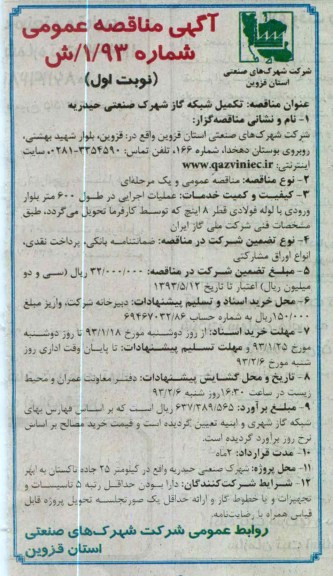 آگهی مناقصه عمومی
شماره ۱/۹۳/ش
(نوبت اول)
شرکت شهرک‌های صنعتی
استان قزوین
عنوان مناقصه: تکمیل شبکه گاز شهرک صنعتی حیدریه
۱- نام و نشانی مناقصه‌گزار:
شرکت شهرک‌های صنعتی استان قزوین واقع در: قزوین، بلوار شهید بهشتی،
روبروی بوستان دهخدا، شماره ۱۶۶، تلفن تماس: ۳۳۵۴۵۹۰-۰۲۸۱، سایت
اینترنتی: www.qazviniec.ir
۲- نوع مناقصه: مناقصه عمومی و یک مرحله‌ای
۳- کیفیت و کمیت خدمات: عملیات اجرایی در طول ۶۰۰ متر بلوار
ورودی با لوله فولادی قطر ۸ اینچ که توسط کارفرما تحویل می‌گردد، طبق
مشخصات فنی شرکت ملی گاز ایران
۴- نوع تضمین شرکت در مناقصه: ضمانتنامه بانکی، پرداخت نقدی،
انواع اوراق مشارکتی
۵- مبلغ تضمین شرکت در مناقصه: ۳۲/۰۰۰/۰۰۰ ریال (سی و دو
میلیون ریال) اعتبار تا تاریخ ۱۳۹۳/۵/۱۲
۶- محل خرید اسناد و تسلیم پیشنهادات: دبیرخانه شرکت، واریز مبلغ
۱۵۰/۰۰۰ریال به شماره حساب ۶۹۴۶۷۰۳۲/۸۶
۷- مهلت خرید اسناد: از روز دوشنبه مورخ ۹۳/۱/۱۸ تا روز دوشنبه
مورخ ۹۳/۱/۲۵ و مهلت تسلیم پیشنهادات: تا پایان وقت اداری روز
شنبه مورخ ۹۳/۲/۶
۸- تاریخ و محل گشایش پیشنهادات: دفتر معاونت عمران و محیط
زیست در ساعت ۱۶:۳۰روز شنبه ۹۳/۲/۶
۹- مبلغ برآورد: ۶۳۷/۲۸۹/۵۶۵ ریال است که بر اساس فهارس بهای
شبکه گاز شهری و ابنیه تعیین گردیده است و قیمت خرید مصالح بر اساس
نرخ روز برآورد گردیده است.
۱۰- مدت قرارداد: ۲ماه
۱۱- محل پروژه: شهرک صنعتی حیدریه واقع در کیلومتر ۲۵ جاده تاکستان به ابهر
۱۲- شرایط شرکت‌کنندگان: دارا بودن حداقل رتبه ۵ تاسیسات و
تجهیزات و یا خطوط گاز و ارائه حداقل یک صورتجلسه تحویل پروژه قابل
قیاس همراه با رضایت‌نامه.
روابط عمومی شرکت شهرک‌های صنعتی
استان قزوین